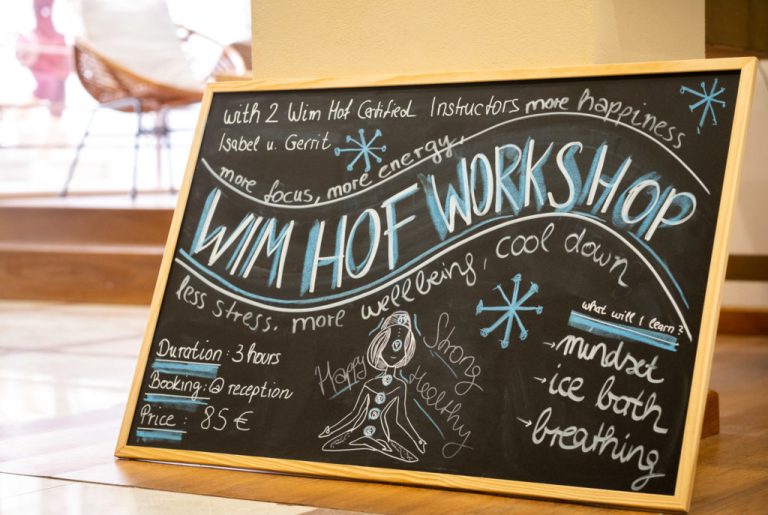 with 2 Wim Hof Certified Instructors
Isabel u. Gerrit
more focus, more energy, more happiness
WIM HOF WORKSHOP
less stress. more wellbeing, cool down
Duration: 3 hours
Booking: @ reception
Price: 85 €
Happy
Strong
Healthy
what will I learn?
→ mindset
→ ice bath
→ breathing